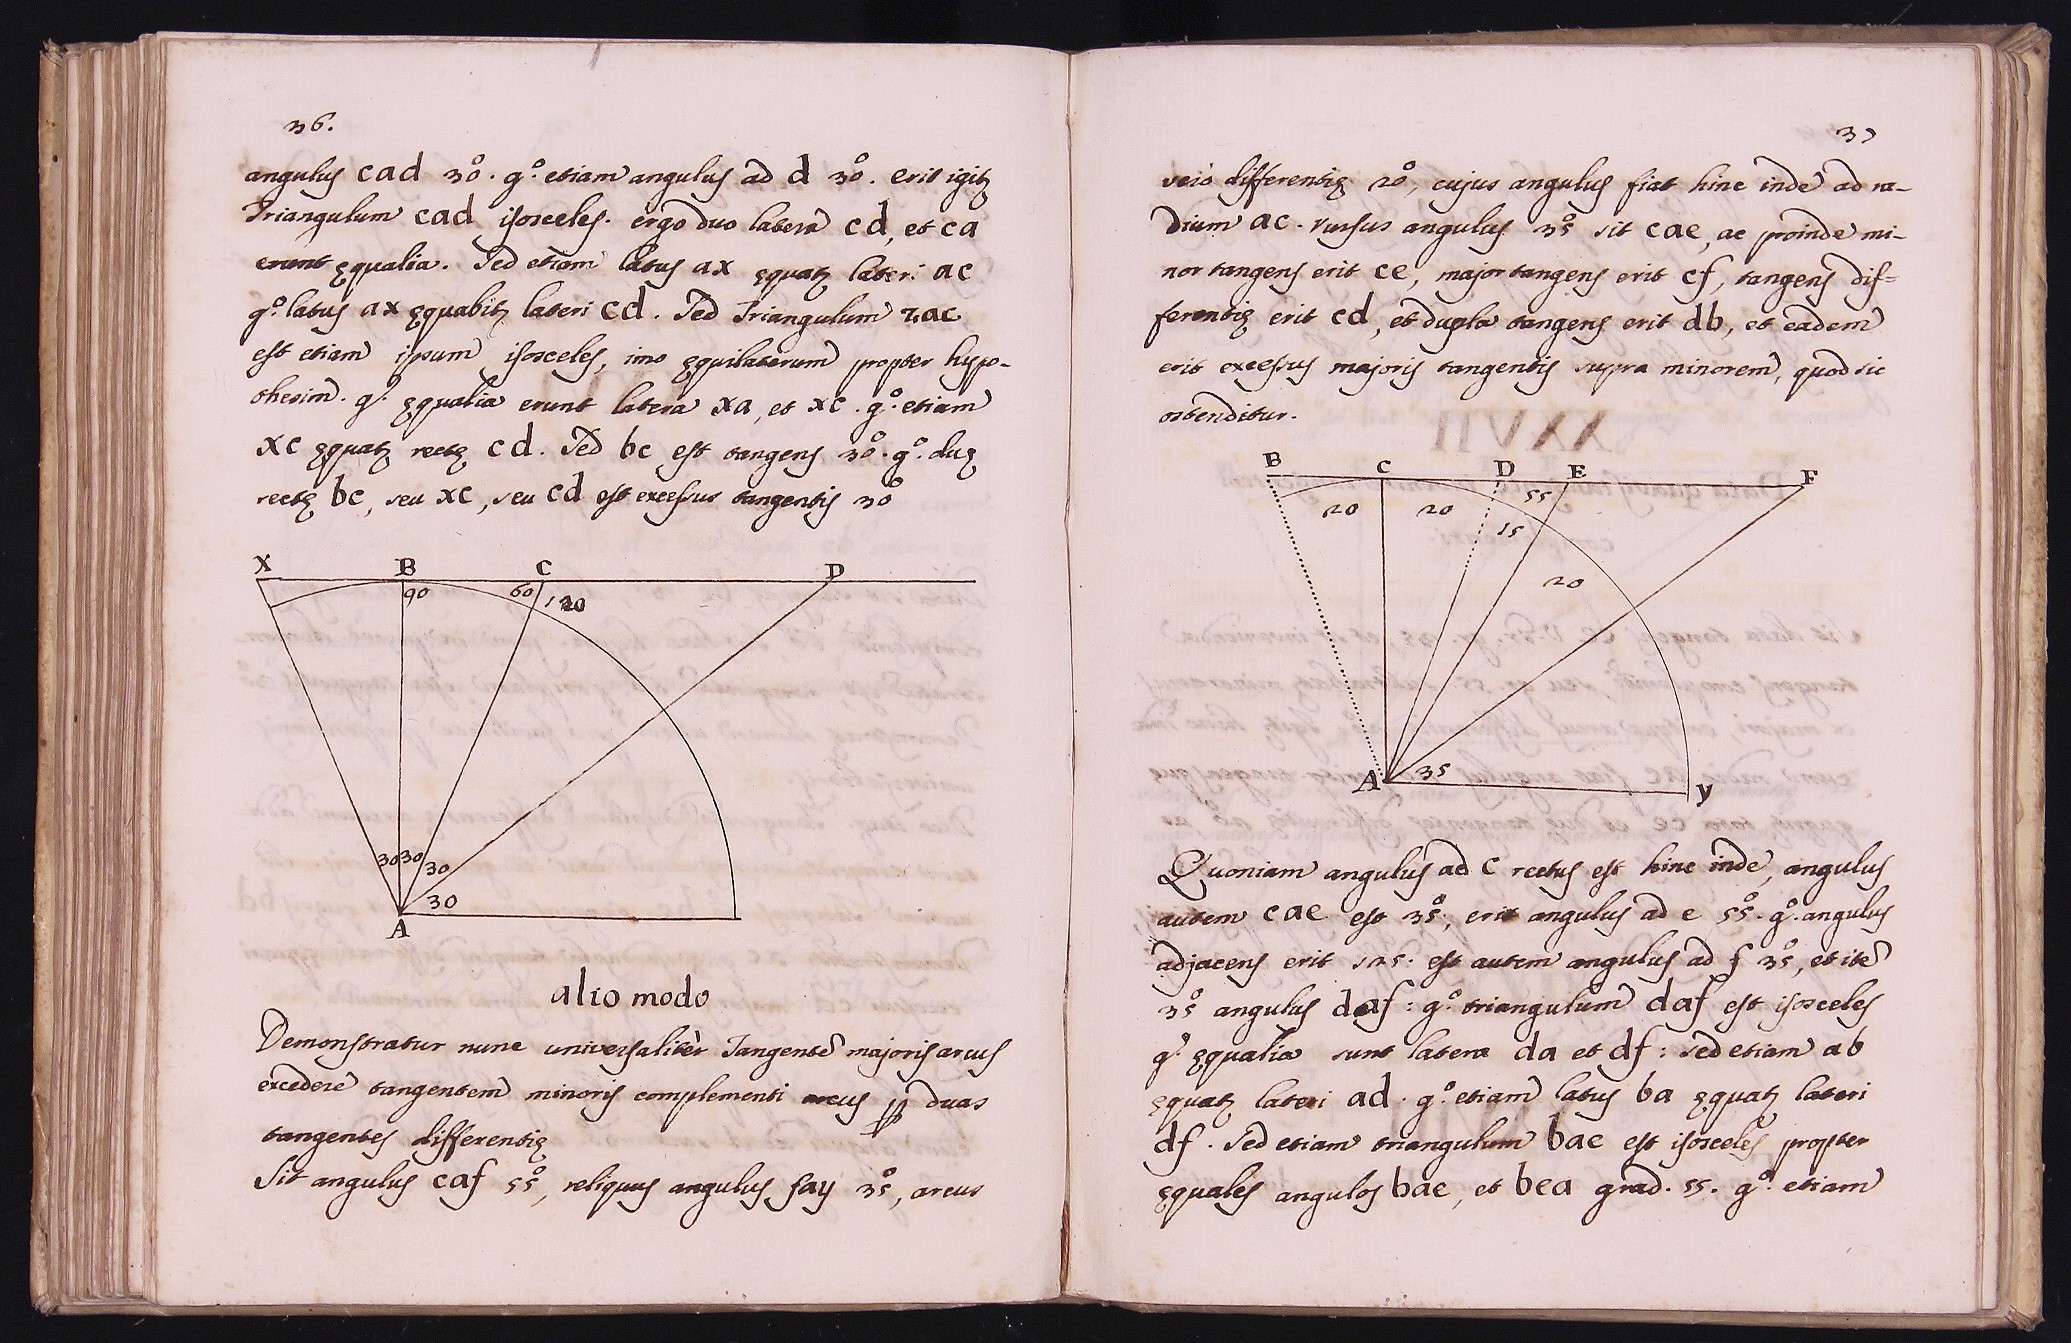 36.
angulus cad 30°. g°. etiam angulus ad d 30°. erit igitʒ
Triangulum cad isosceles. ergo duo latera cd, et ca
erunt ęqualia. Sed etiam latus ax ęquatʒ lateri ac
g°. latus ax ęquabitʒ lateri cd. Sed Triangulum xac
est etiam ipsum isosceles, imo ęquilaterum propter hypo-
thesim. g°. ęqualia erunt latera xa, et xc. g°. etiam
xc ęquatʒ rectę cd. Sed bc est tangens 30°. g°. duę
rectę bc, seu xc, seu cd est excessus tangentis 30°
X B C D
90 60 120
30 30 30
30
A
alio modo
Demonstratur nunc universalitèr Tangentē majoris arcus
excedere tangentem minoris complementi arcus ꝑ duas
tangentes differentię
Sit angulus caf 55°, reliquus angulus fay 35°, arcus
37
verò differentię 20°, cujus angulus fiat hinc inde ad ra-
dium ac. rursus angulus 35° sit cae, ac proinde mi-
nor tangens erit ce, major tangens erit cf, tangens dif-
ferentię erit cd, et dupla tangens erit db, et eadem
erit excessus majoris tangentis supra minorem, quod sic
ostenditur.
B C D E F
20 20 55
15
20
A 35 y
Quoniam angulus ad c rectus est hinc inde, angulus
autem cae est 35°, erit angulus ad e 55°. g°. angulus
adjacens erit 125. est autem angulus ad f 35°, et itē
35° angulus daf: g°. triangulum daf est isosceles
g°. ęqualia sunt latera da et df: sed etiam ab
ęquatʒ lateri ad. g°. etiam latus ba ęquatʒ lateri
df. Sed etiam triangulum bae est isosceles propter
ęquales angulos bae, et bea grad. 55. g°. etiam